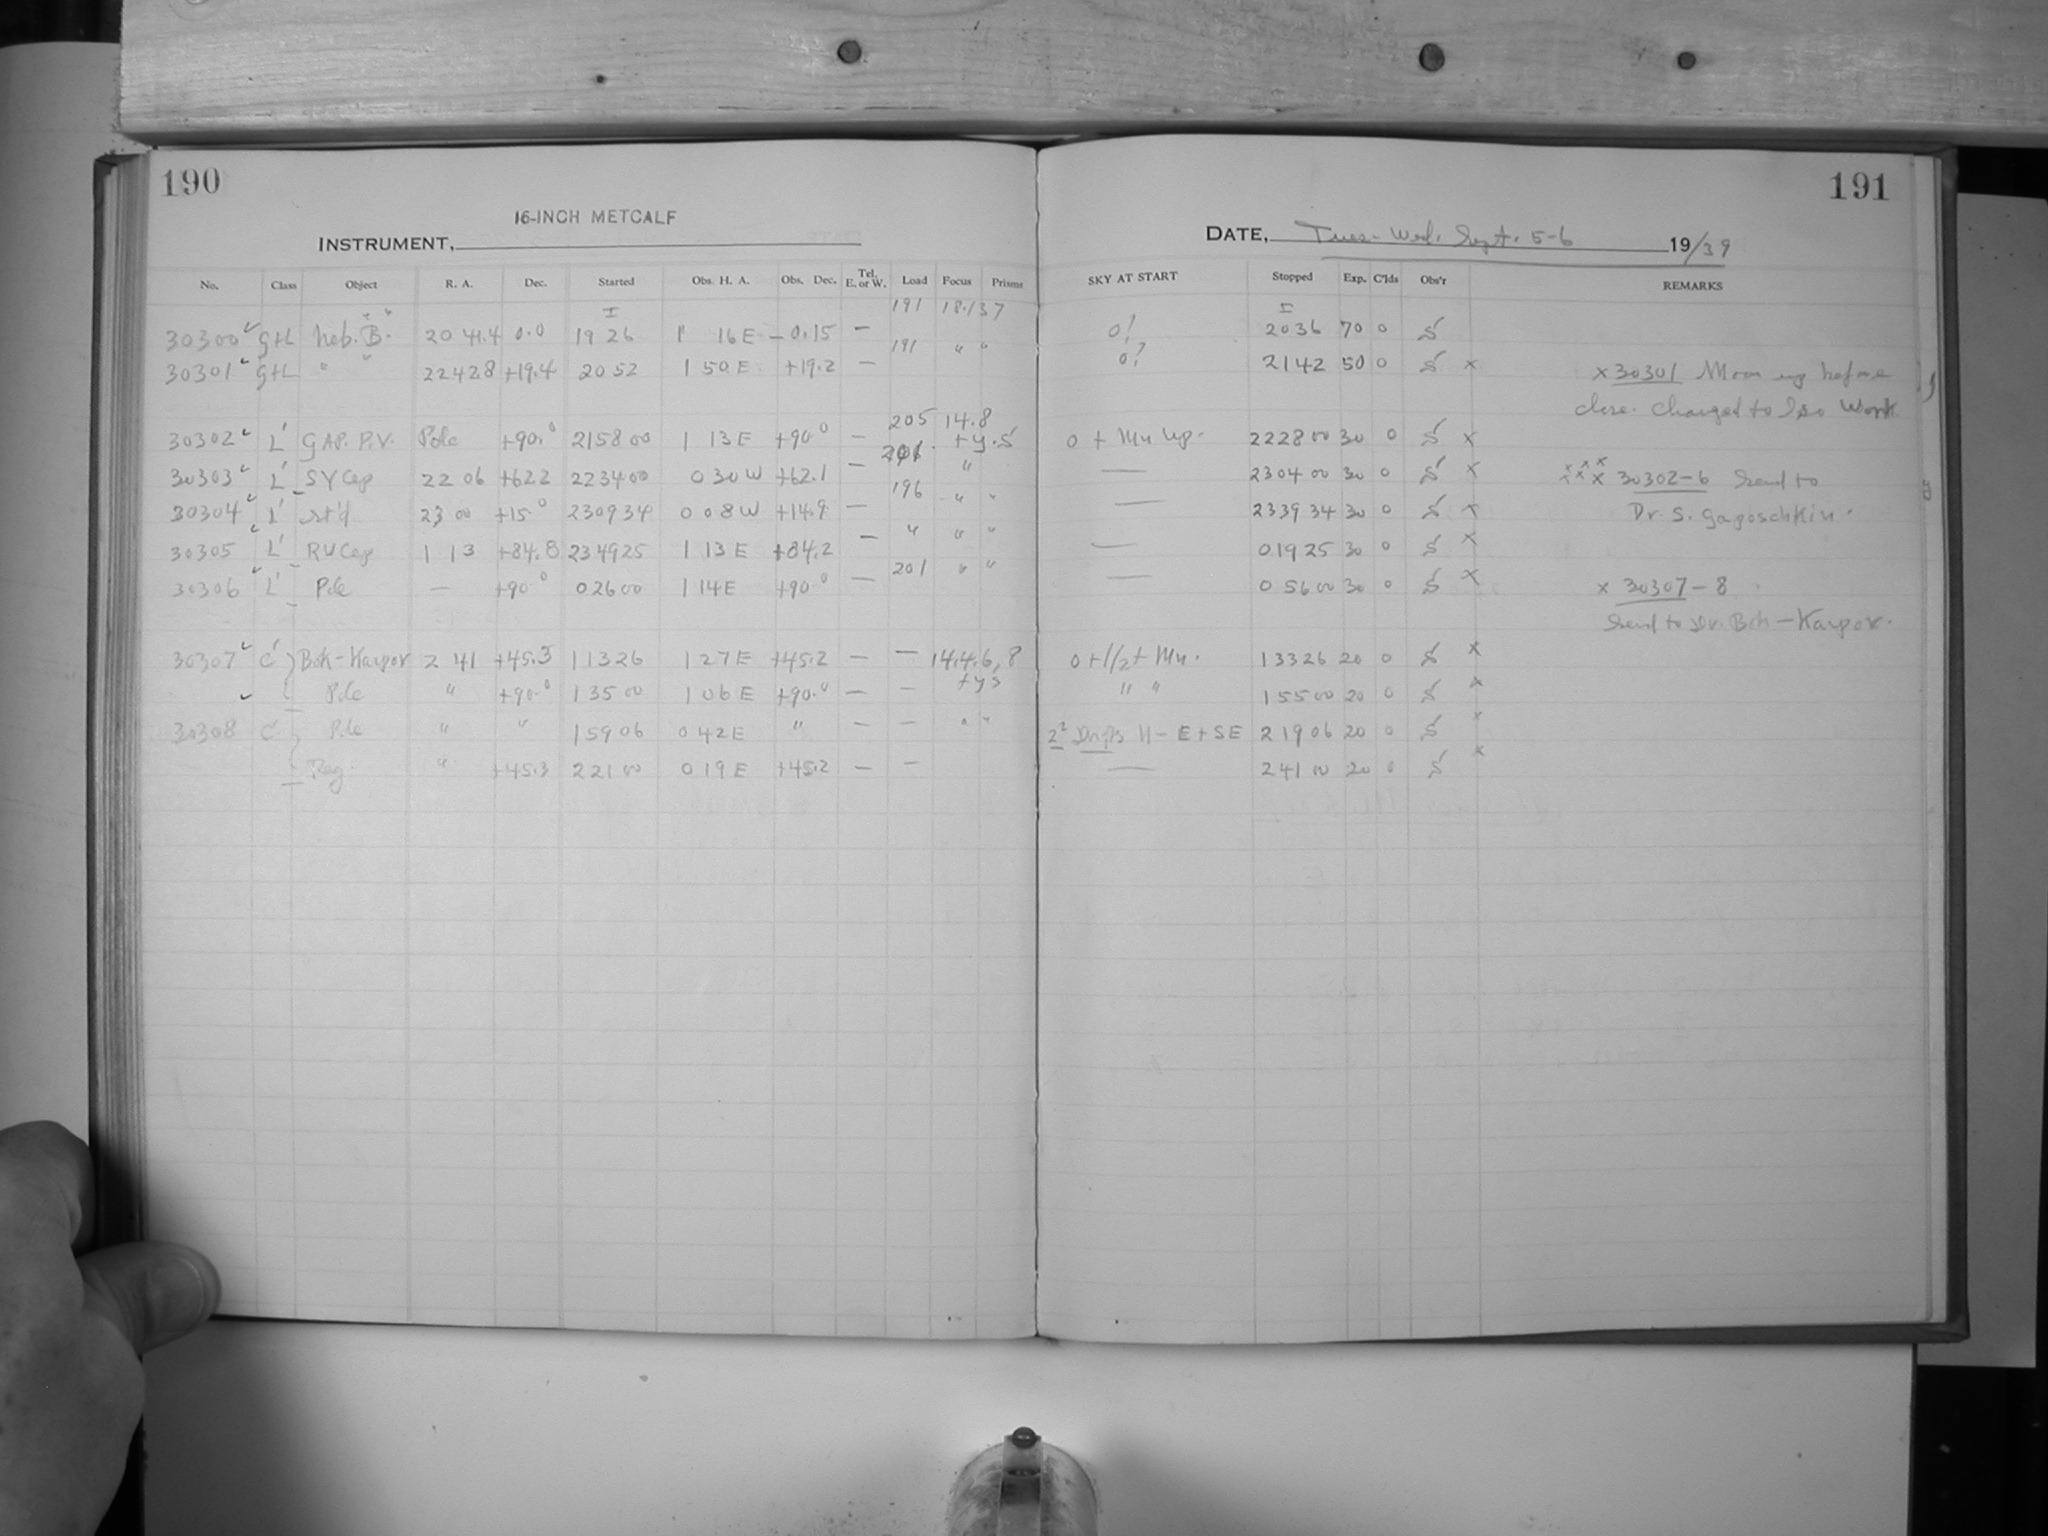 190
16-INCH METCALF
INSTRUMENT,
No. Class Object R. A. Dec. Started Obs. H. A. Obs. Dec. Tel. E. or W. Load Focus Prisms
30300 GH Neb. B. 20 41.4 0.0 19 26 1 16 E -0.15 — 191 18.137
30301 GH " " 22 42.8 +19.4 20 52 1 50 E +19.2 — 191 " "
30302 L' GAP. P.V. Pole +90.0 21 58 00 1 13 E +90.0 — 205 14.8 + y.s
30303 L' SY Cep 22 06 +62.2 22 34 00 0 30 W +62.1 — 201 "
30304 L' st'd 23 00 +15.0 23 09 34 0 08 W +14.9 — 196 " "
30305 L' RU Cep 1 13 +84.8 23 49 25 1 13 E +84.2 — " " "
30306 L' Pole — +90.0 0 26 00 1 14 E +90.0 — 201 " "
30307 C' Bok-Karpov 2 41 +45.3 1 13 26 1 27 E +45.2 — — 14.4.6,8 + ys
Pole " +90.0 1 35 00 1 06 E +90.0 — —
30308 C' Pole " " 1 59 06 0 42 E " — — " "
Reg. " +45.3 2 21 00 0 19 E +45.2 — —
191
DATE, Tues-Wed. Sept. 5-6 19/39
SKY AT START Stopped Exp. C'lds Obs'r REMARKS
0! 20 36 70 0 S
0? 21 42 50 0 S x
x 30301 Moon up before
close. Changed to Iso Work
0 + Mn up. 22 28 00 30 0 S x
— 23 04 00 30 0 S x x x x 30302-6 Send to
— 23 39 34 30 0 S x Dr. S. Gaposchkin.
— 0 19 25 30 0 S x
— 0 56 00 30 0 S x x 30307-8
Send to Dr. Bok-Karpov.
0 + 1/2 + Mn. 1 33 26 20 0 S x
" " 1 55 00 20 0 S x
2 19 06 20 0 S x
— 2 41 00 20 0 S x